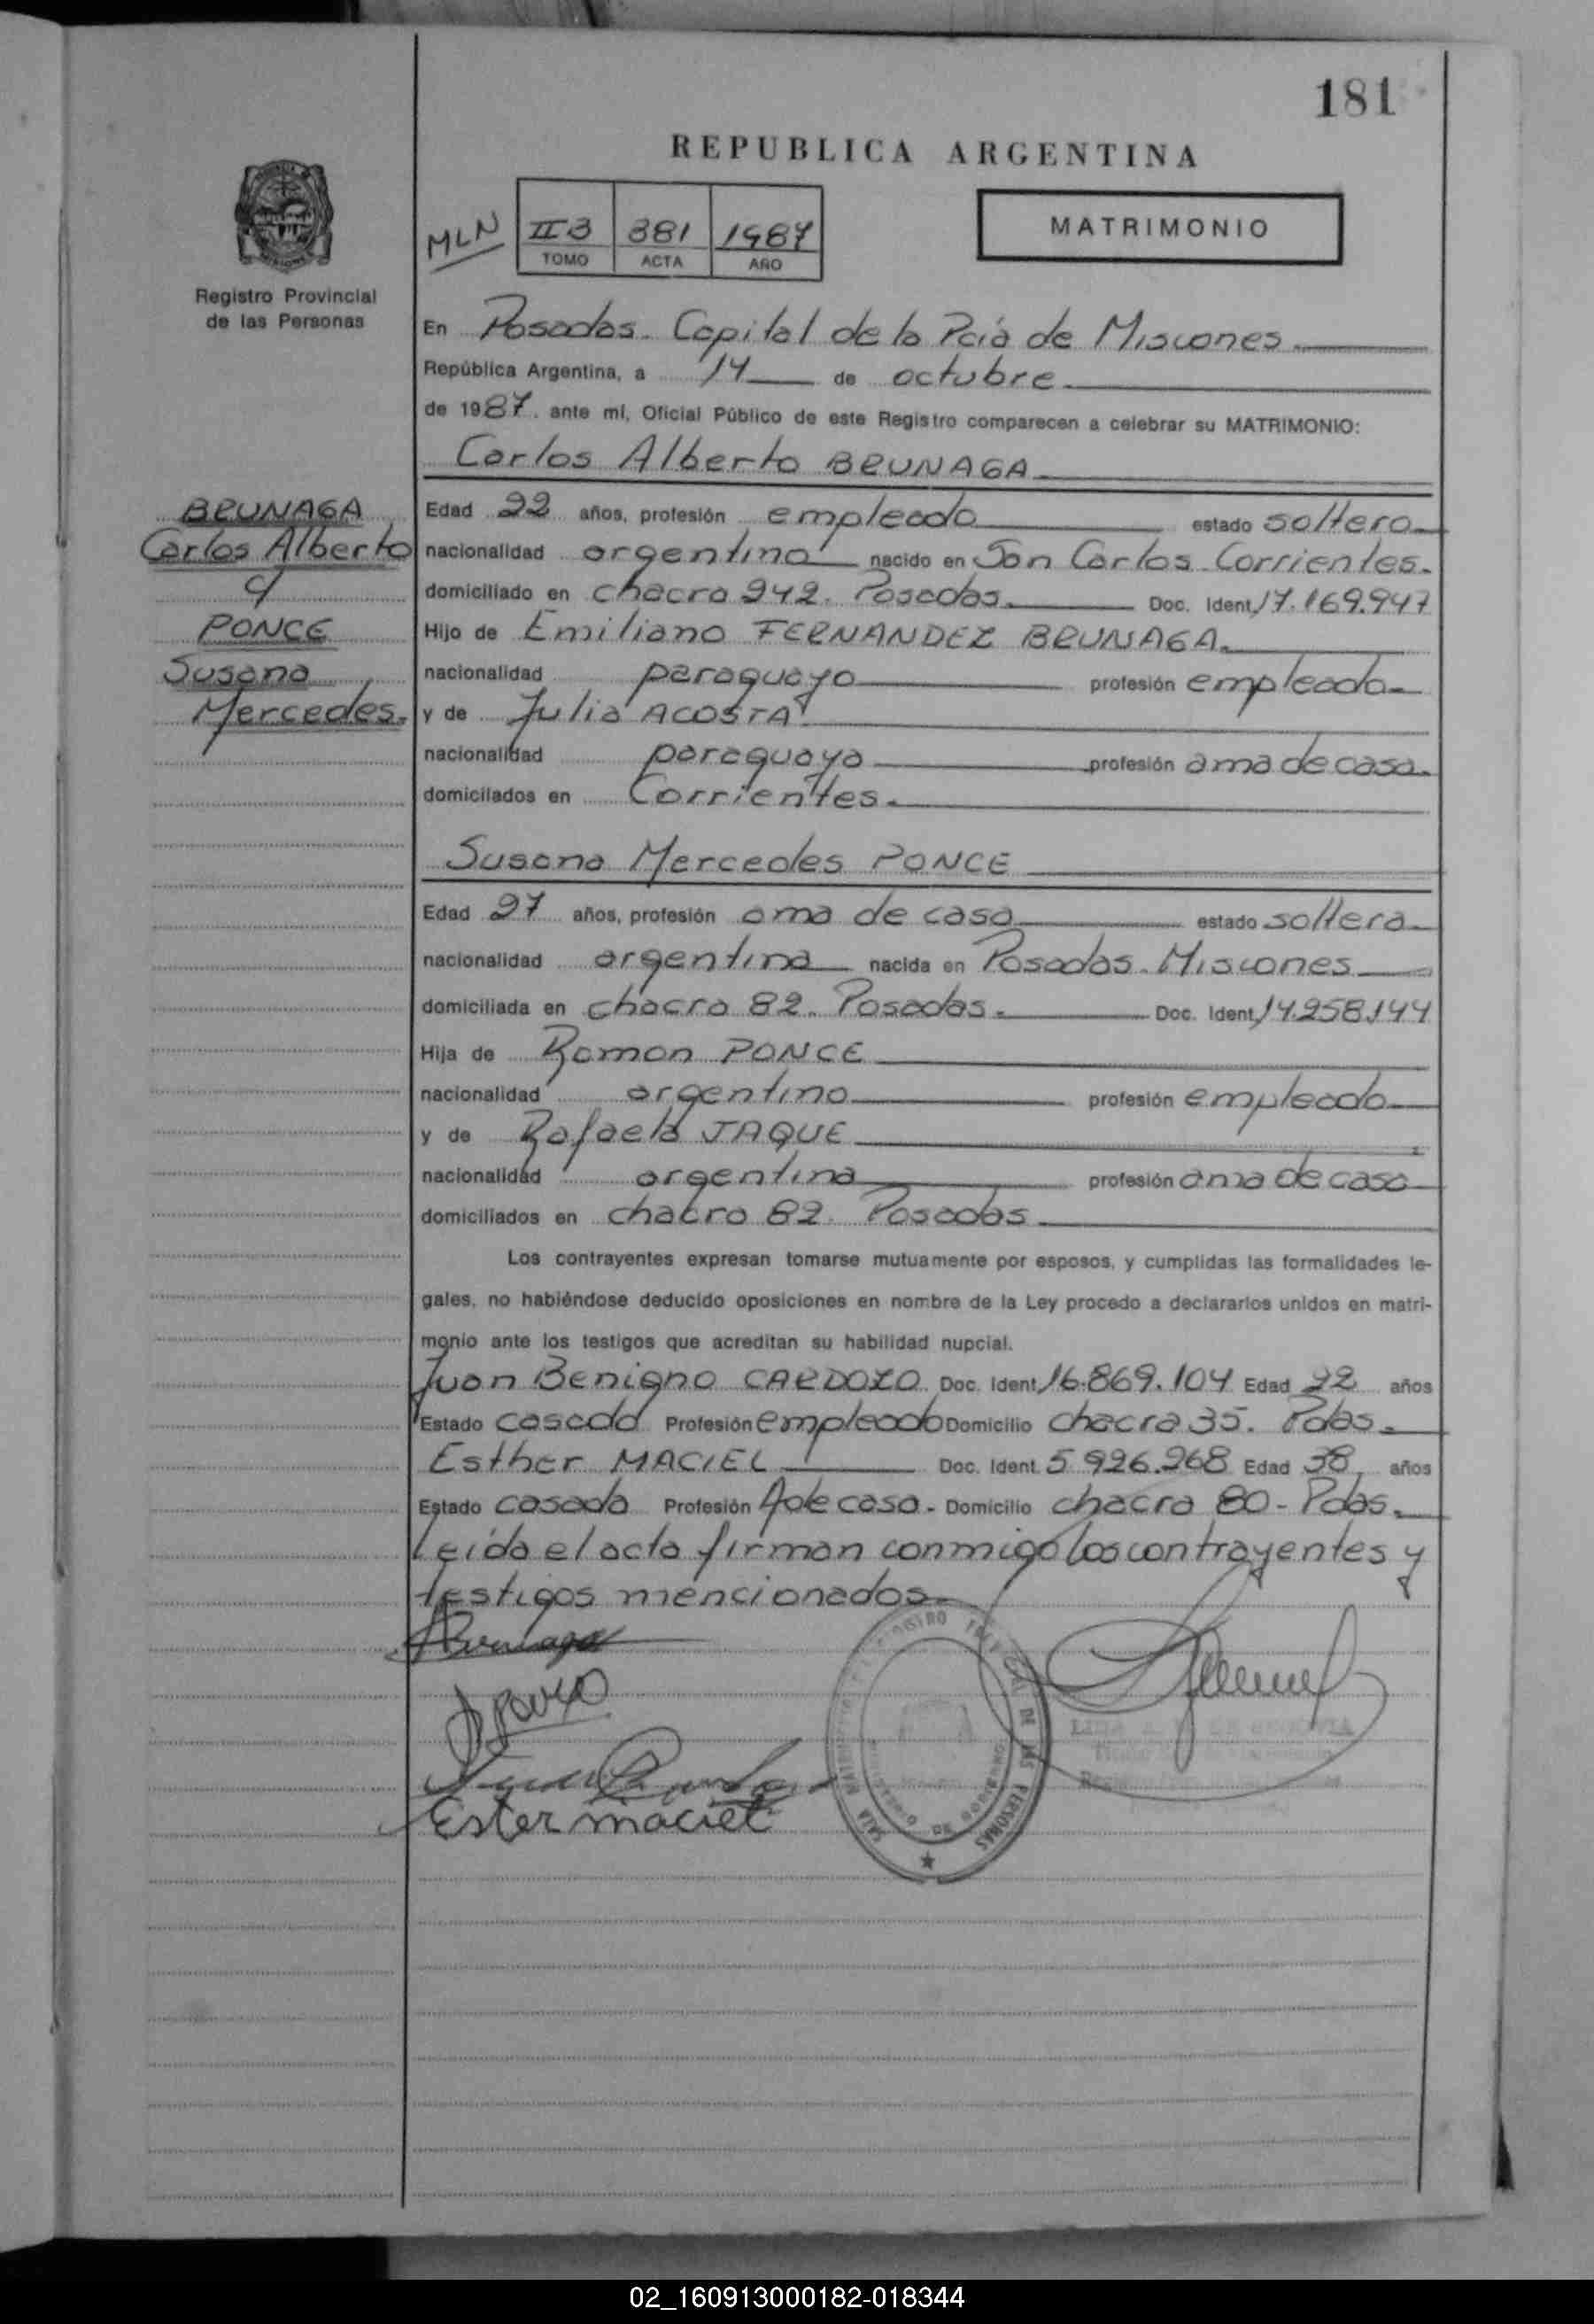 181
REPUBLICA ARGENTINA
MATRIMONIO
MLN
II 3 381 1987
TOMO ACTA AÑO
Registro Provincial
de las Personas
En Posadas. Capital de la Pcia de Misiones
República Argentina, a 14 de octubre
de 1987. ante mí, Oficial Público de este Registro comparecen a celebrar su MATRIMONIO:
Carlos Alberto BRUNAGA
BRUNAGA
Carlos Alberto
c/
PONCE
Susana
Mercedes.
Edad 22 años, profesión empleado estado soltero
nacionalidad argentina nacido en San Carlos. Corrientes.
domiciliado en chacra 242. Posadas. Doc. Ident. 17.169.947
Hijo de Emiliano FERNANDEZ BRUNAGA.
nacionalidad paraguayo profesión empleado
y de Julia ACOSTA
nacionalidad paraguaya profesión ama de casa.
domicilados en Corrientes.
Susana Mercedes PONCE
Edad 27 años, profesión ama de casa estado soltera
nacionalidad argentina nacida en Posadas. Misiones
domiciliada en chacra 82. Posadas. Doc. Ident. 14.258.144
Hija de Ramon PONCE
nacionalidad argentino profesión empleado
y de Rafaela JAQUE
nacionalidad argentina profesión ama de casa
domiciliados en chacra 82. Posadas
Los contrayentes expresan tomarse mutuamente por esposos, y cumplidas las formalidades le-
gales, no habiéndose deducido oposiciones en nombre de la Ley procedo a declararlos unidos en matri-
monio ante los testigos que acreditan su habilidad nupcial.
Juan Benigno CARDOZO Doc. Ident. 16.869.104 Edad 22 años
Estado casado Profesión empleado Domicilio chacra 35. Pdas.
Esther MACIEL Doc. Ident. 5.926.268 Edad 38 años
Estado casada Profesión A de casa. Domicilio chacra 80 - Pdas.
Leída el acta firman conmigo los contrayentes y
testigos mencionados.
Brunaga
Ester maciel
DE LAS PERSONAS
02_160913000182-018344